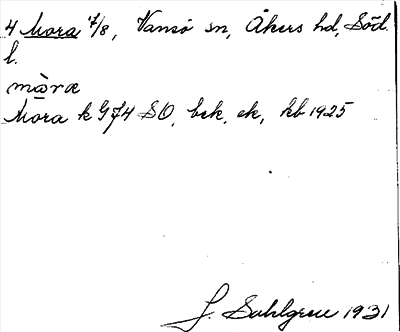 4 Mora 7/8, Vansö sn, Åkers hd, Söd.
l.
mòræ
Mora k G74 SO, bck, ek, kb 1925
J. Sahlgren 1931